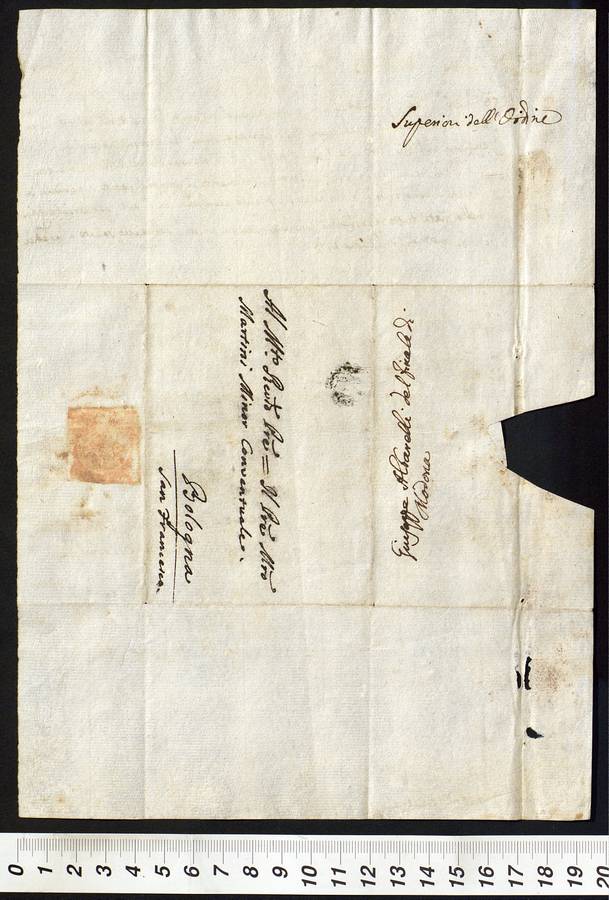 Superiori dell'Ordine
Al Mto Revdo Pre = Il Pre Mro
Martini Minor Conventuale.
Bologna
San Francesco.
Giuseppe del Finale di
Modena
0 1 2 3 4 5 6 7 8 9 10 11 12 13 14 15 16 17 18 19 20